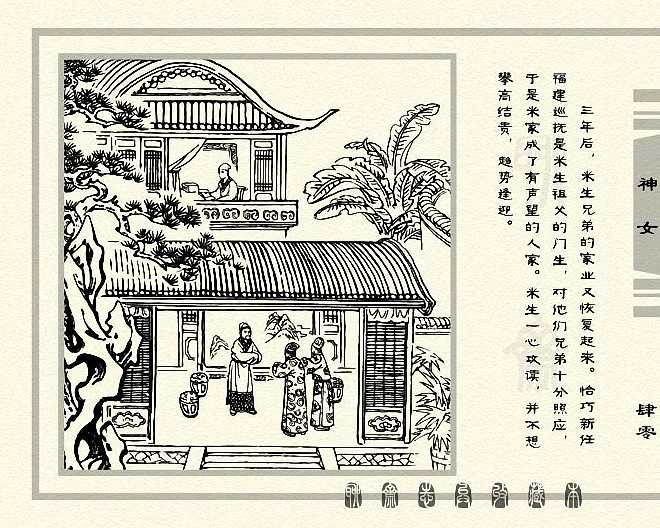 三年后，米生兄弟的家业又恢复起来。恰巧新任
福建巡抚是米生祖父的门生，对他们兄弟十分照应，
于是米家成了有声望的人家。米生一心攻读，并不想
攀高结贵，趋势逢迎。
神女
肆零